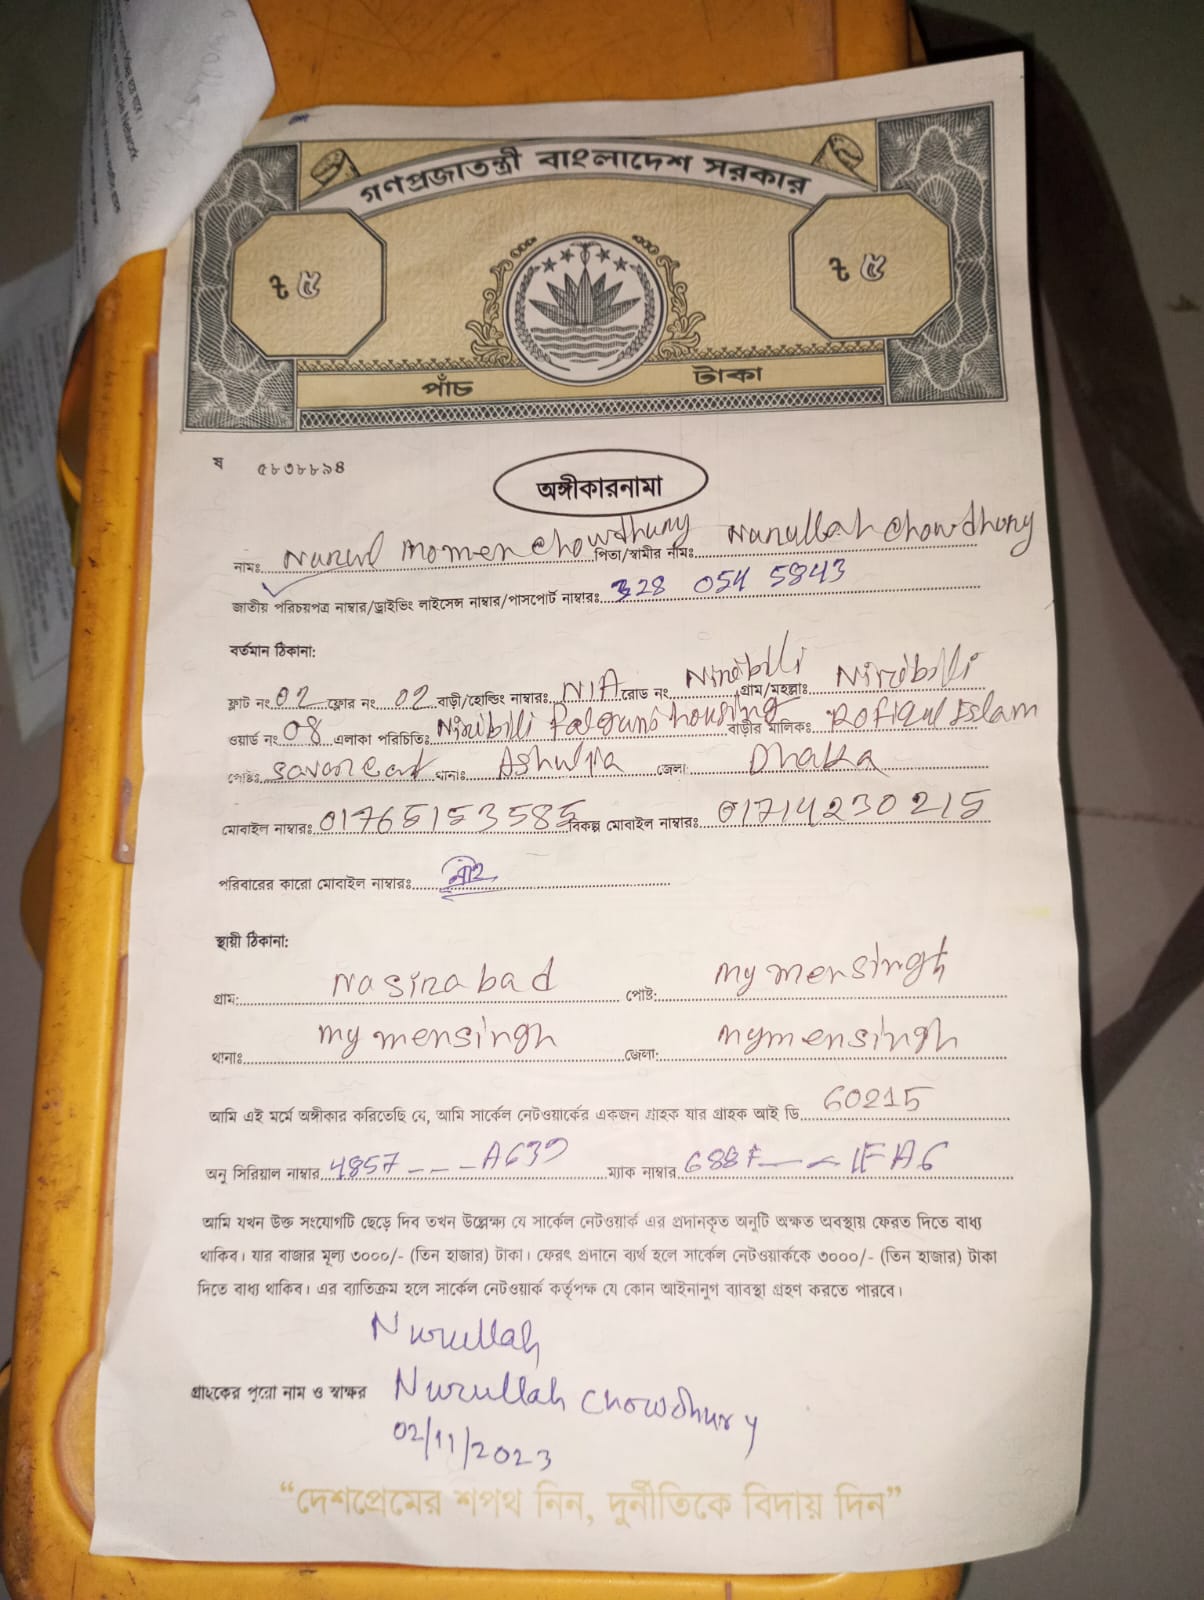 গণপ্রজাতন্ত্রী বাংলাদেশ সরকার
৳ ৫ ৳ ৫
পাঁচ টাকা
ষ ৫৮৩৮৮৯৪
অঙ্গীকারনামা
নামঃ Nurul Momen Chowdhury পিতা/স্বামীর নামঃ Nurullah Chowdhury
জাতীয় পরিচয়পত্র নাম্বার/ড্রাইভিং লাইসেন্স নাম্বার/পাসপোর্ট নাম্বারঃ 328 054 5843
বর্তমান ঠিকানা:
ফ্লাট নং 02 ফ্লোর নং 02 বাড়ী/হোল্ডিং নাম্বারঃ N/A রোড নং Niribili গ্রাম/মহল্লাঃ Niribili
ওয়ার্ড নং 08 এলাকা পরিচিতিঃ Niribili Falguni housing বাড়ীর মালিকঃ Rofiqul Islam
পোষ্টঃ Savar cant থানাঃ Ashulia জেলা Dhaka
মোবাইল নাম্বারঃ 01765153585 বিকল্প মোবাইল নাম্বারঃ 01714230215
পরিবারের কারো মোবাইল নাম্বারঃ নাই
স্থায়ী ঠিকানা:
গ্রাম: Nasirabad পোষ্ট: Mymensingh
থানাঃ Mymensingh জেলা: Mymensingh
আমি এই মর্মে অঙ্গীকার করিতেছি যে, আমি সার্কেল নেটওয়ার্কের একজন গ্রাহক যার গ্রাহক আই ডি 60215
অনু সিরিয়াল নাম্বার 4857---A639 ম্যাক নাম্বার 688F--1FA6
আমি যখন উক্ত সংযোগটি ছেড়ে দিব তখন উল্লেক্ষ্য যে সার্কেল নেটওয়ার্ক এর প্রদানকৃত অনুটি অক্ষত অবস্থায় ফেরত দিতে বাধ্য
থাকিব। যার বাজার মূল্য ৩০০০/- (তিন হাজার) টাকা। ফেরৎ প্রদানে ব্যর্থ হলে সার্কেল নেটওয়ার্ককে ৩০০০/- (তিন হাজার) টাকা
দিতে বাধ্য থাকিব। এর ব্যাতিক্রম হলে সার্কেল নেটওয়ার্ক কর্তৃপক্ষ যে কোন আইনানুগ ব্যাবস্থা গ্রহণ করতে পারবে।
Nurullah
গ্রাহকের পুরো নাম ও স্বাক্ষর Nurullah Chowdhury
02/11/2023
“দেশপ্রেমের শপথ নিন, দুর্নীতিকে বিদায় দিন”